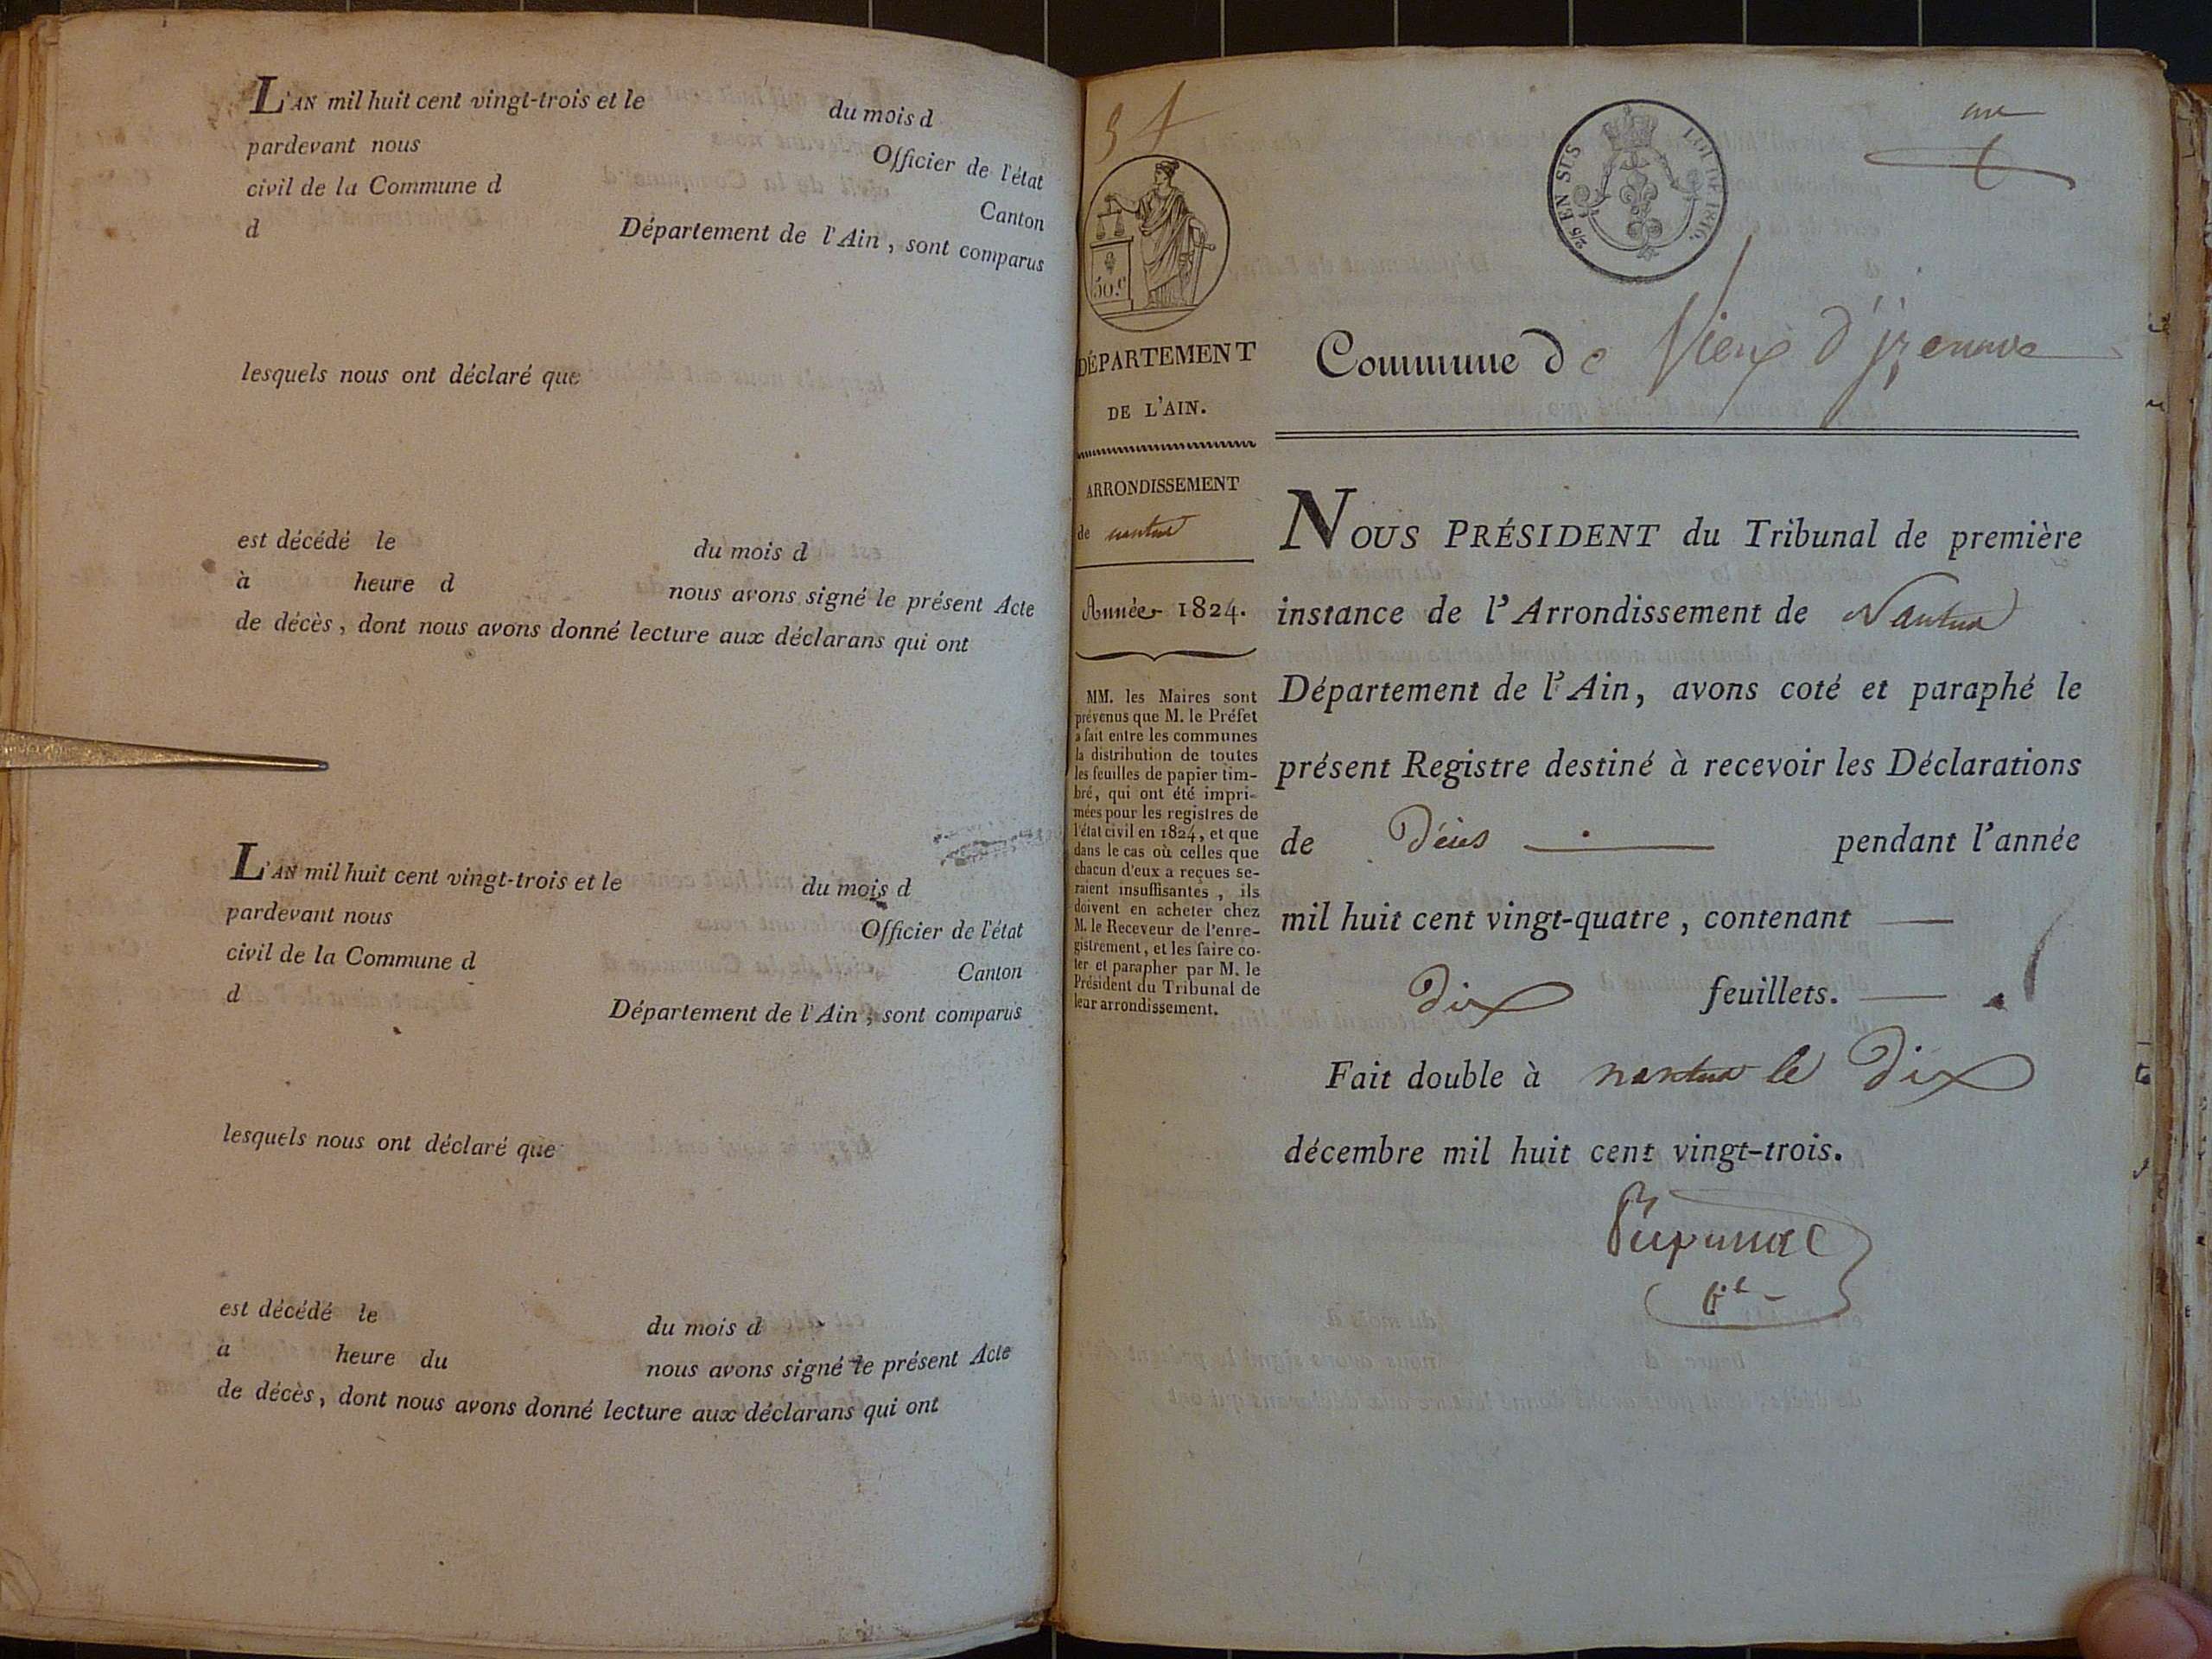 L'AN mil huit cent vingt-trois et le du mois d
pardevant nous Officier de l'état
civil de la Commune d Canton
d Département de l'Ain, sont comparus
lesquels nous ont déclaré que
est décédé le du mois d
à heure d nous avons signé le présent Acte
de décès, dont nous avons donné lecture aux déclarans qui ont
L'AN mil huit cent vingt-trois et le du mois d
pardevant nous Officier de l'état
civil de la Commune d Canton
d Département de l'Ain, sont comparus
lesquels nous ont déclaré que
est décédé le du mois d
à heure du nous avons signé le présent Acte
de décès, dont nous avons donné lecture aux déclarans qui ont
50.c
DÉPARTEMENT
DE L'AIN.
ARRONDISSEMENT
de nantua
Année 1824.
MM. les Maires sont
prévenus que M. le Préfet
a fait entre les communes
la distribution de toutes
les feuilles de papier tim-
bré, qui ont été impri-
mées pour les registres de
l'état civil en 1824, et que
dans le cas où celles que
chacun d'eux a reçues se-
raient insuffisantes, ils
doivent en acheter chez
M. le Receveur de l'enre-
gistrement, et les faire co-
ter et parapher par M. le
Président du Tribunal de
leur arrondissement.
EN SUS LOI DE 1816.
une
Commune de Vieux d'izenave
NOUS PRÉSIDENT du Tribunal de première
instance de l'Arrondissement de Nantua
Département de l'Ain, avons coté et paraphé le
présent Registre destiné à recevoir les Déclarations
de Décès pendant l'année
mil huit cent vingt-quatre, contenant
Dix feuillets.
Fait double à nantua le Dix
décembre mil huit cent vingt-trois.